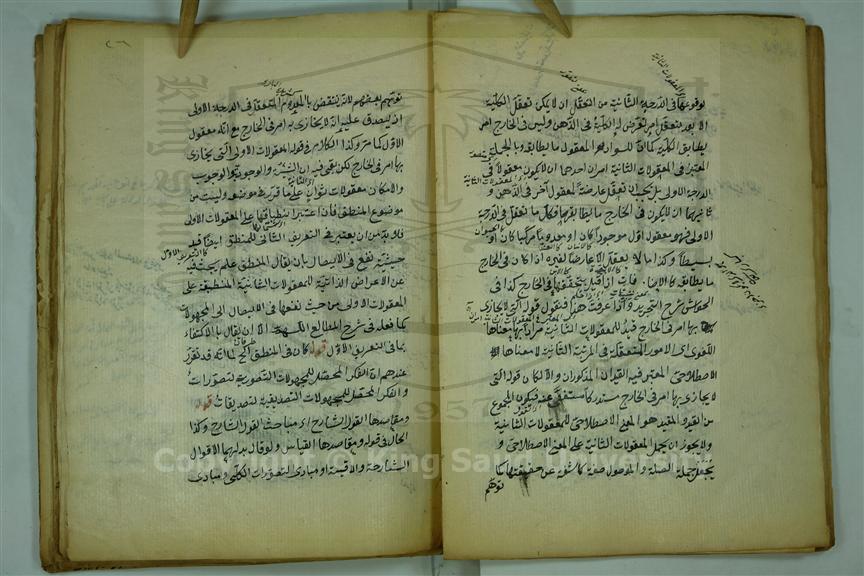 لوقوعها في الدرجة الثانية من التعقل اذ لا يمكن تعقل الكلية
الا بعد تعقل امر تعرض له الكلية في الذهن وليس في الخارج امر
يطابق الكلية كما ان للسواد المعقول ما يطابقه وبالجملة
المعتبر في المعقولات الثانية امران احدهما ان لا يكون معقولا في
الدرجة الاولى بل يجب ان تعقل عارضة لمعقول آخر في الذهن و
ثانيهما ان لا يكون في الخارج ما يطابقها فكل ما تعقل في الدرجة
الاولى فهو معقول اول موجودا كان او معدوما مركبا كان او
بسيطا وكذا ما لا يعقل الا عارضا لغيره اذا كان في الخارج
ما يطابقه كالاضافات اذا قيل بتحققها في الخارج كذا في
الحواشي شرح التجريد واذا عرفت هذا فنقول قوله التي لا يحاذى
بها امر في الخارج قيد للمعقولات الثانية مرادا بها معناها
اللغوي اي الامور المتعقلة في المرتبة الثانية لا معناها
الاصطلاحي المعتبر فيه القيدان المذكوران والا لكان قوله التي
لا يحاذى بها امر في الخارج مستدركا مستغنى عنه فيكون المجموع
من القيد والمقيد هو المعنى الاصطلاحي للمعقولات الثانية
ولا يجوز ان يحمل المعقولات الثانية على المعنى الاصطلاحي و
يجعل جملة الصلة والموصول صفة كاشفة عن حقيقتها كما
توهم
توهم بعضهم لانه ينتقض بالمعدوم المتعقل في الدرجة الاولى
اذ يصدق عليه انه لا يحاذى به امر في الخارج مع انه معقول
الاول كما مر وكذا الكلام في قوله المعقولات الاولى التي يحاذى
بها امر في الخارج لكن بقي فيه ان الشيئية والوجود والوجوب
والامكان معقولات ثوان على ما قرر في موضعه وليست من
موضوع المنطق فان اعتبر انطباقها على المعقولات الاولى
فلا بد من ان يعتبر في التعريف الثاني للمنطق ايضا قيد
حيثية نفع في الايصال بان يقال المنطق علم يبحث فيه
عن الاعراض الذاتية للمعقولات الثانية المنطبقة على
المعقولات الاولى من حيث نفعها في الايصال الى المجهولات
كما فعله في شرح المطالع اللهم الا ان يقال بالاكتفاء
بما في التعريف الاول قوله كان في المنطق الخ لما انه قد تقرر
عندهم ان الفكر المحصل للمجهولات التصورية تصورات
والفكر المحصل للمجهولات التصديقية تصديقات قوله
ومقاصدها القول الشارح اي مباحث القول الشارح وكذا
الحال في قوله ومقاصدها القياس ولو قال بدله بها الاقوال
الشارحة والاقيسة او مبادي التصورات الكلي ومبادي
Copyright © King Saud University
1957